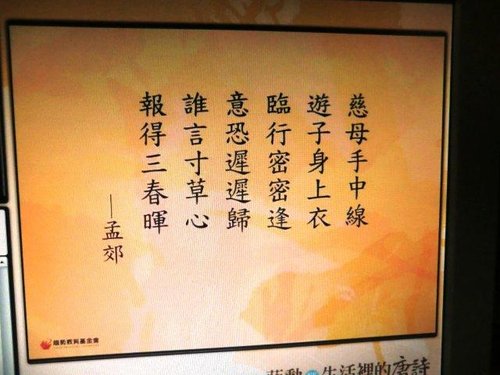 慈母手中線
遊子身上衣
臨行密密逢
意恐遲遲歸
誰言寸草心
報得三春暉
—孟郊
趨勢教育基金會
生活裡的唐詩